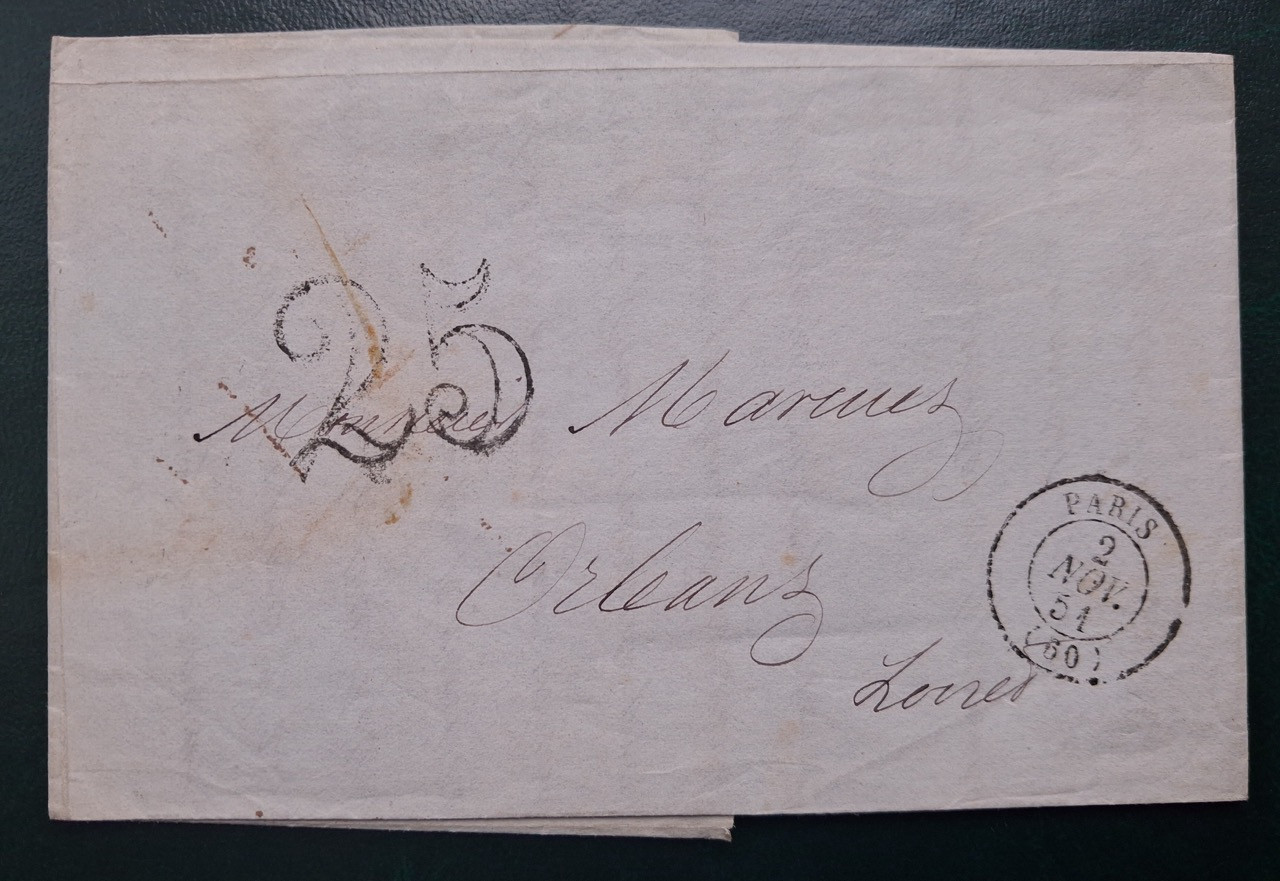 25
Monsieur Marcuez
Orleans
Loiret
PARIS
2
NOV.
51
(60)